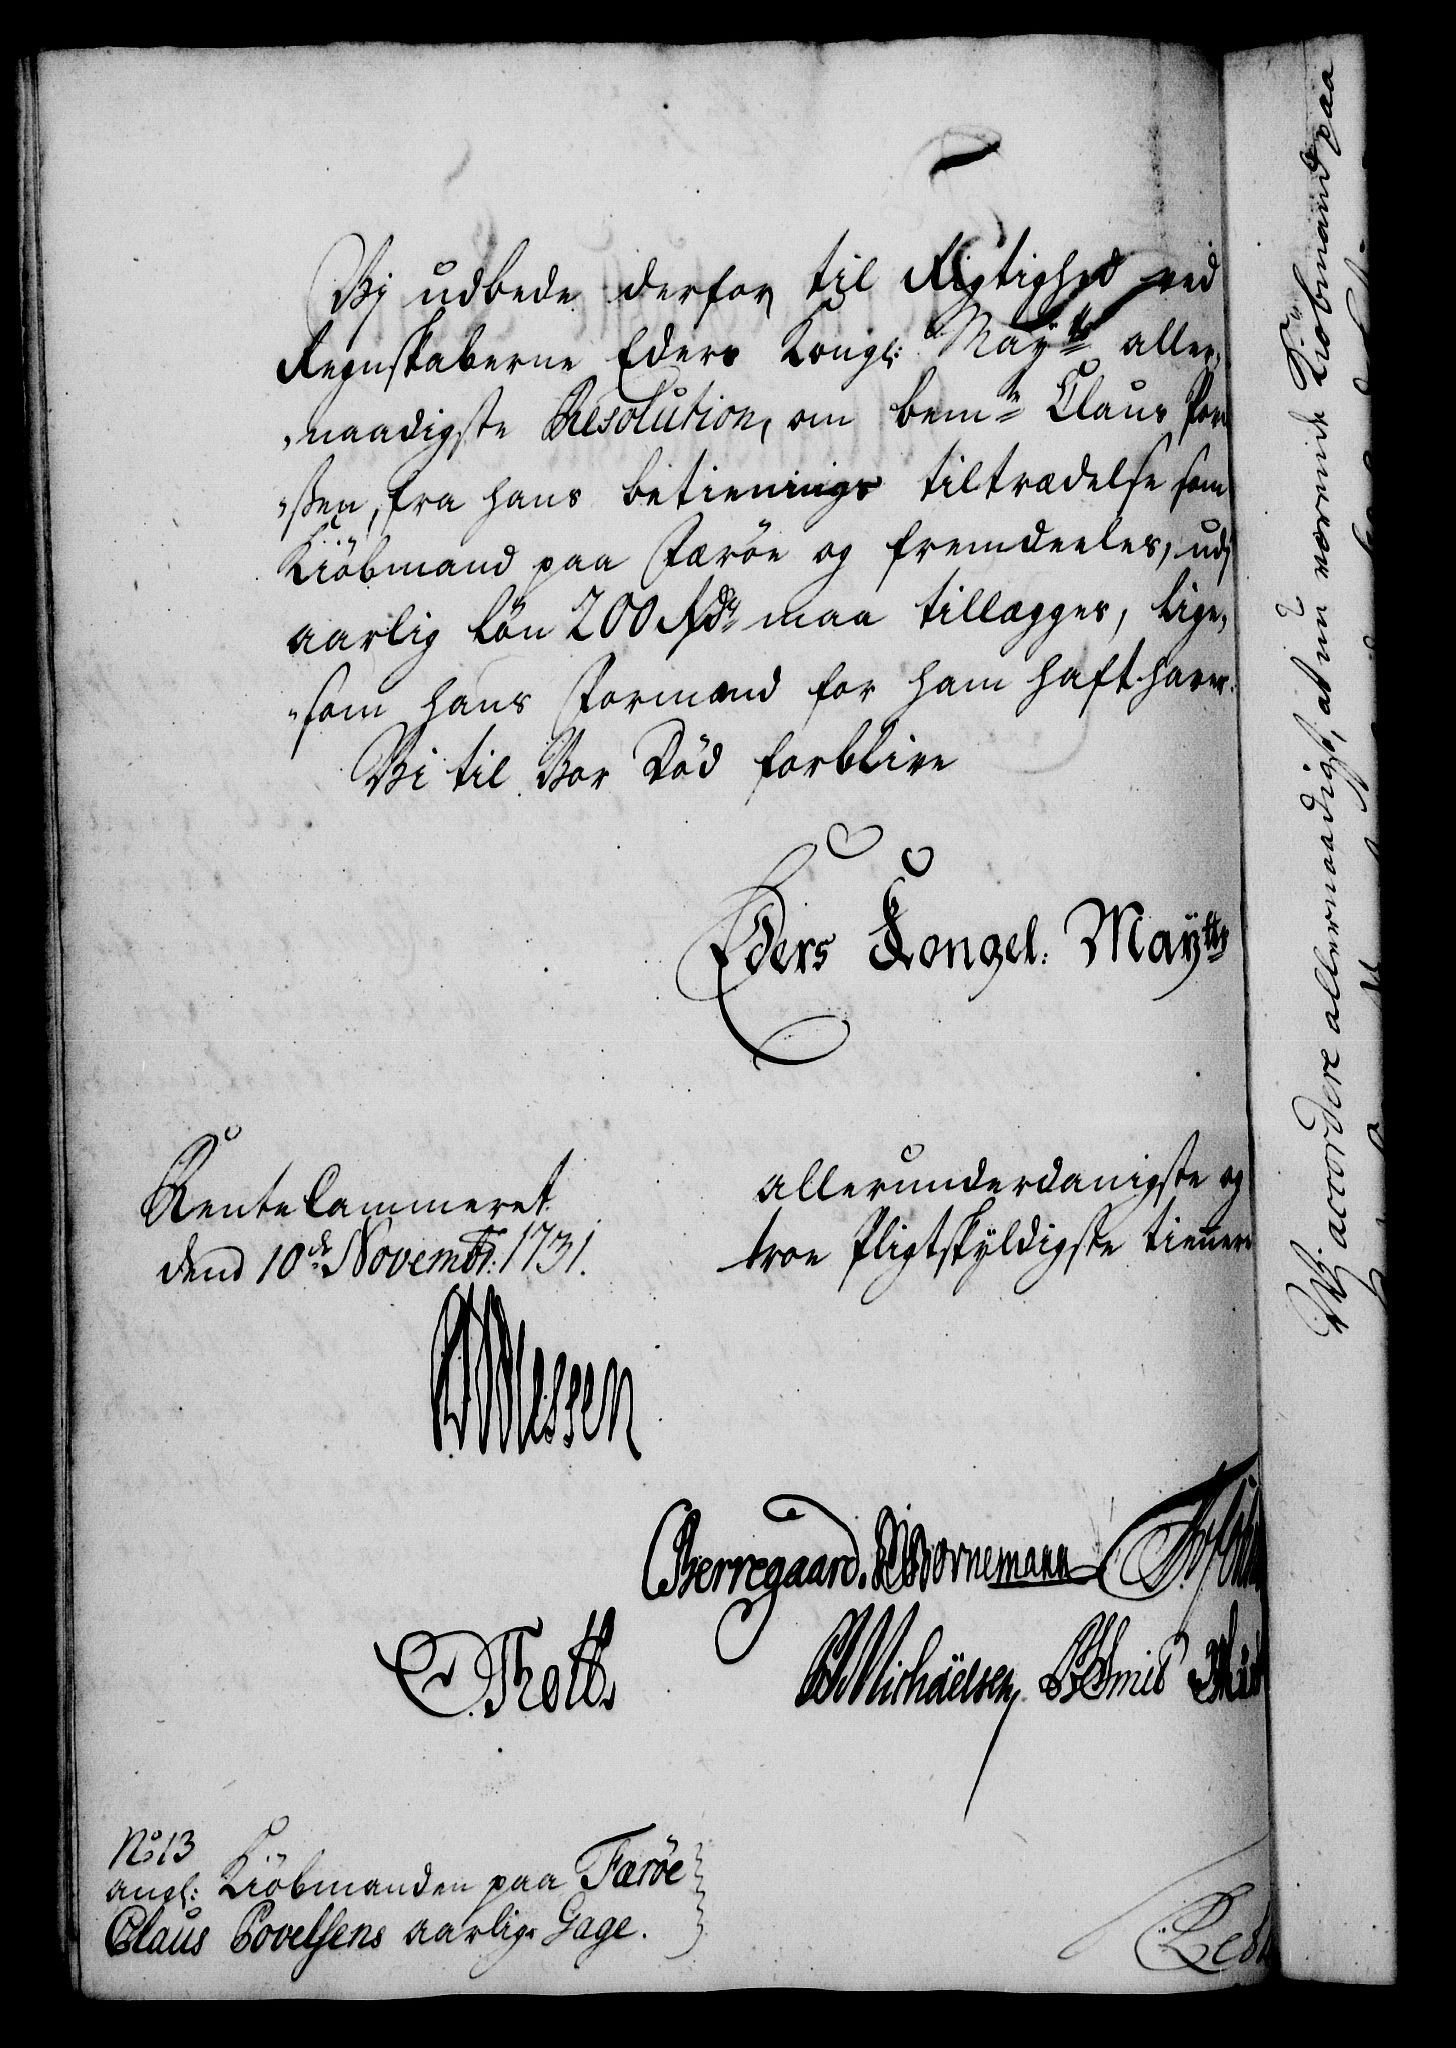 Vi udbede derfor til Rigtighed ved
Regnskaberne Eders Kongl: May.ts aller,
naadigste Resolution, om bem.te Claus Pov
,,ssen, fra hans betienings tiltrædelse som
Kiöbmand paa Færöe og fremdeeles, udj
aarlig Lön 200 Rdr maa tillegges, lige,
,,som hans Formand for ham haft haver.
Vi til Vor Död forblive
Eders Kongel. Maytts
RenteCammeret
dend 10de Novembr: 1731.
allerunderdanigste og
troe Pligtskyldigste tienere
Wlessen
CBerregaard. Bornemann
OThott
Michaelsen,
No 13
angl: Kiöbmanden paa Færöe
Claus Povelsens aarlige Gage.
Vj accordere allernaadigst, at nu værende Kiöbmand paa